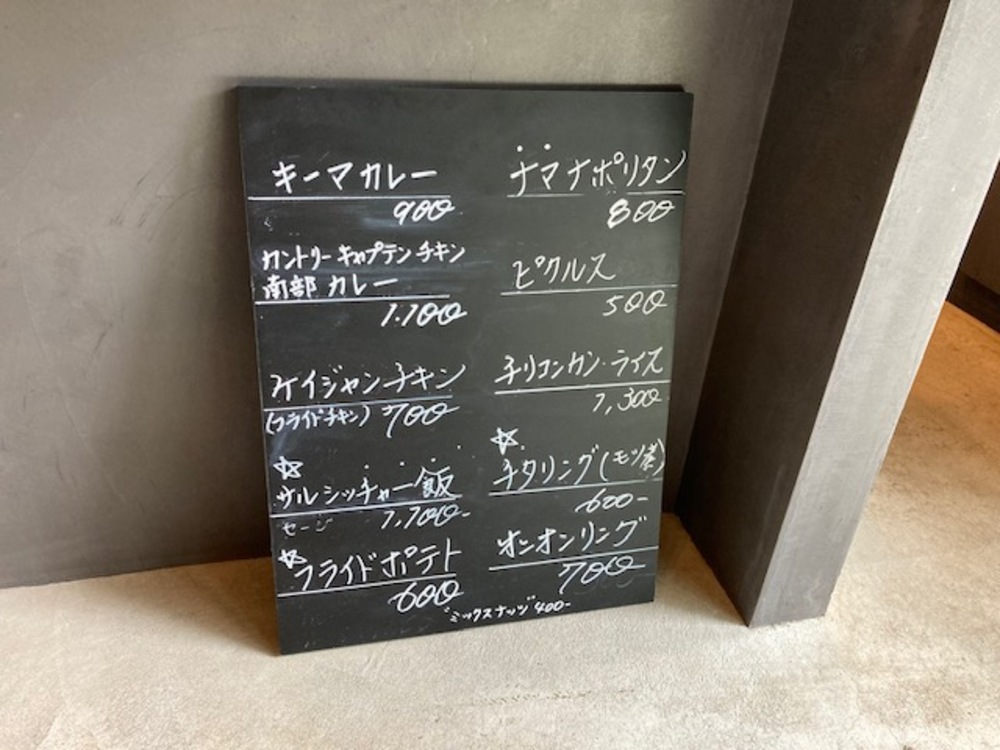 キーマカレー
900
カントリーキャプテンチキン
南部カレー
1.100
ケイジャンチキン
(フライドチキン) 700
☆
サルシッチャー飯
セージ
1,100-
☆フライドポテト
600
ナマナポリタン
800
ピクルス
500
チリコンカン・ライス
1,300
☆
チタリング(モツ煮)
600-
オニオンリング
700
ミックスナッツ 400-